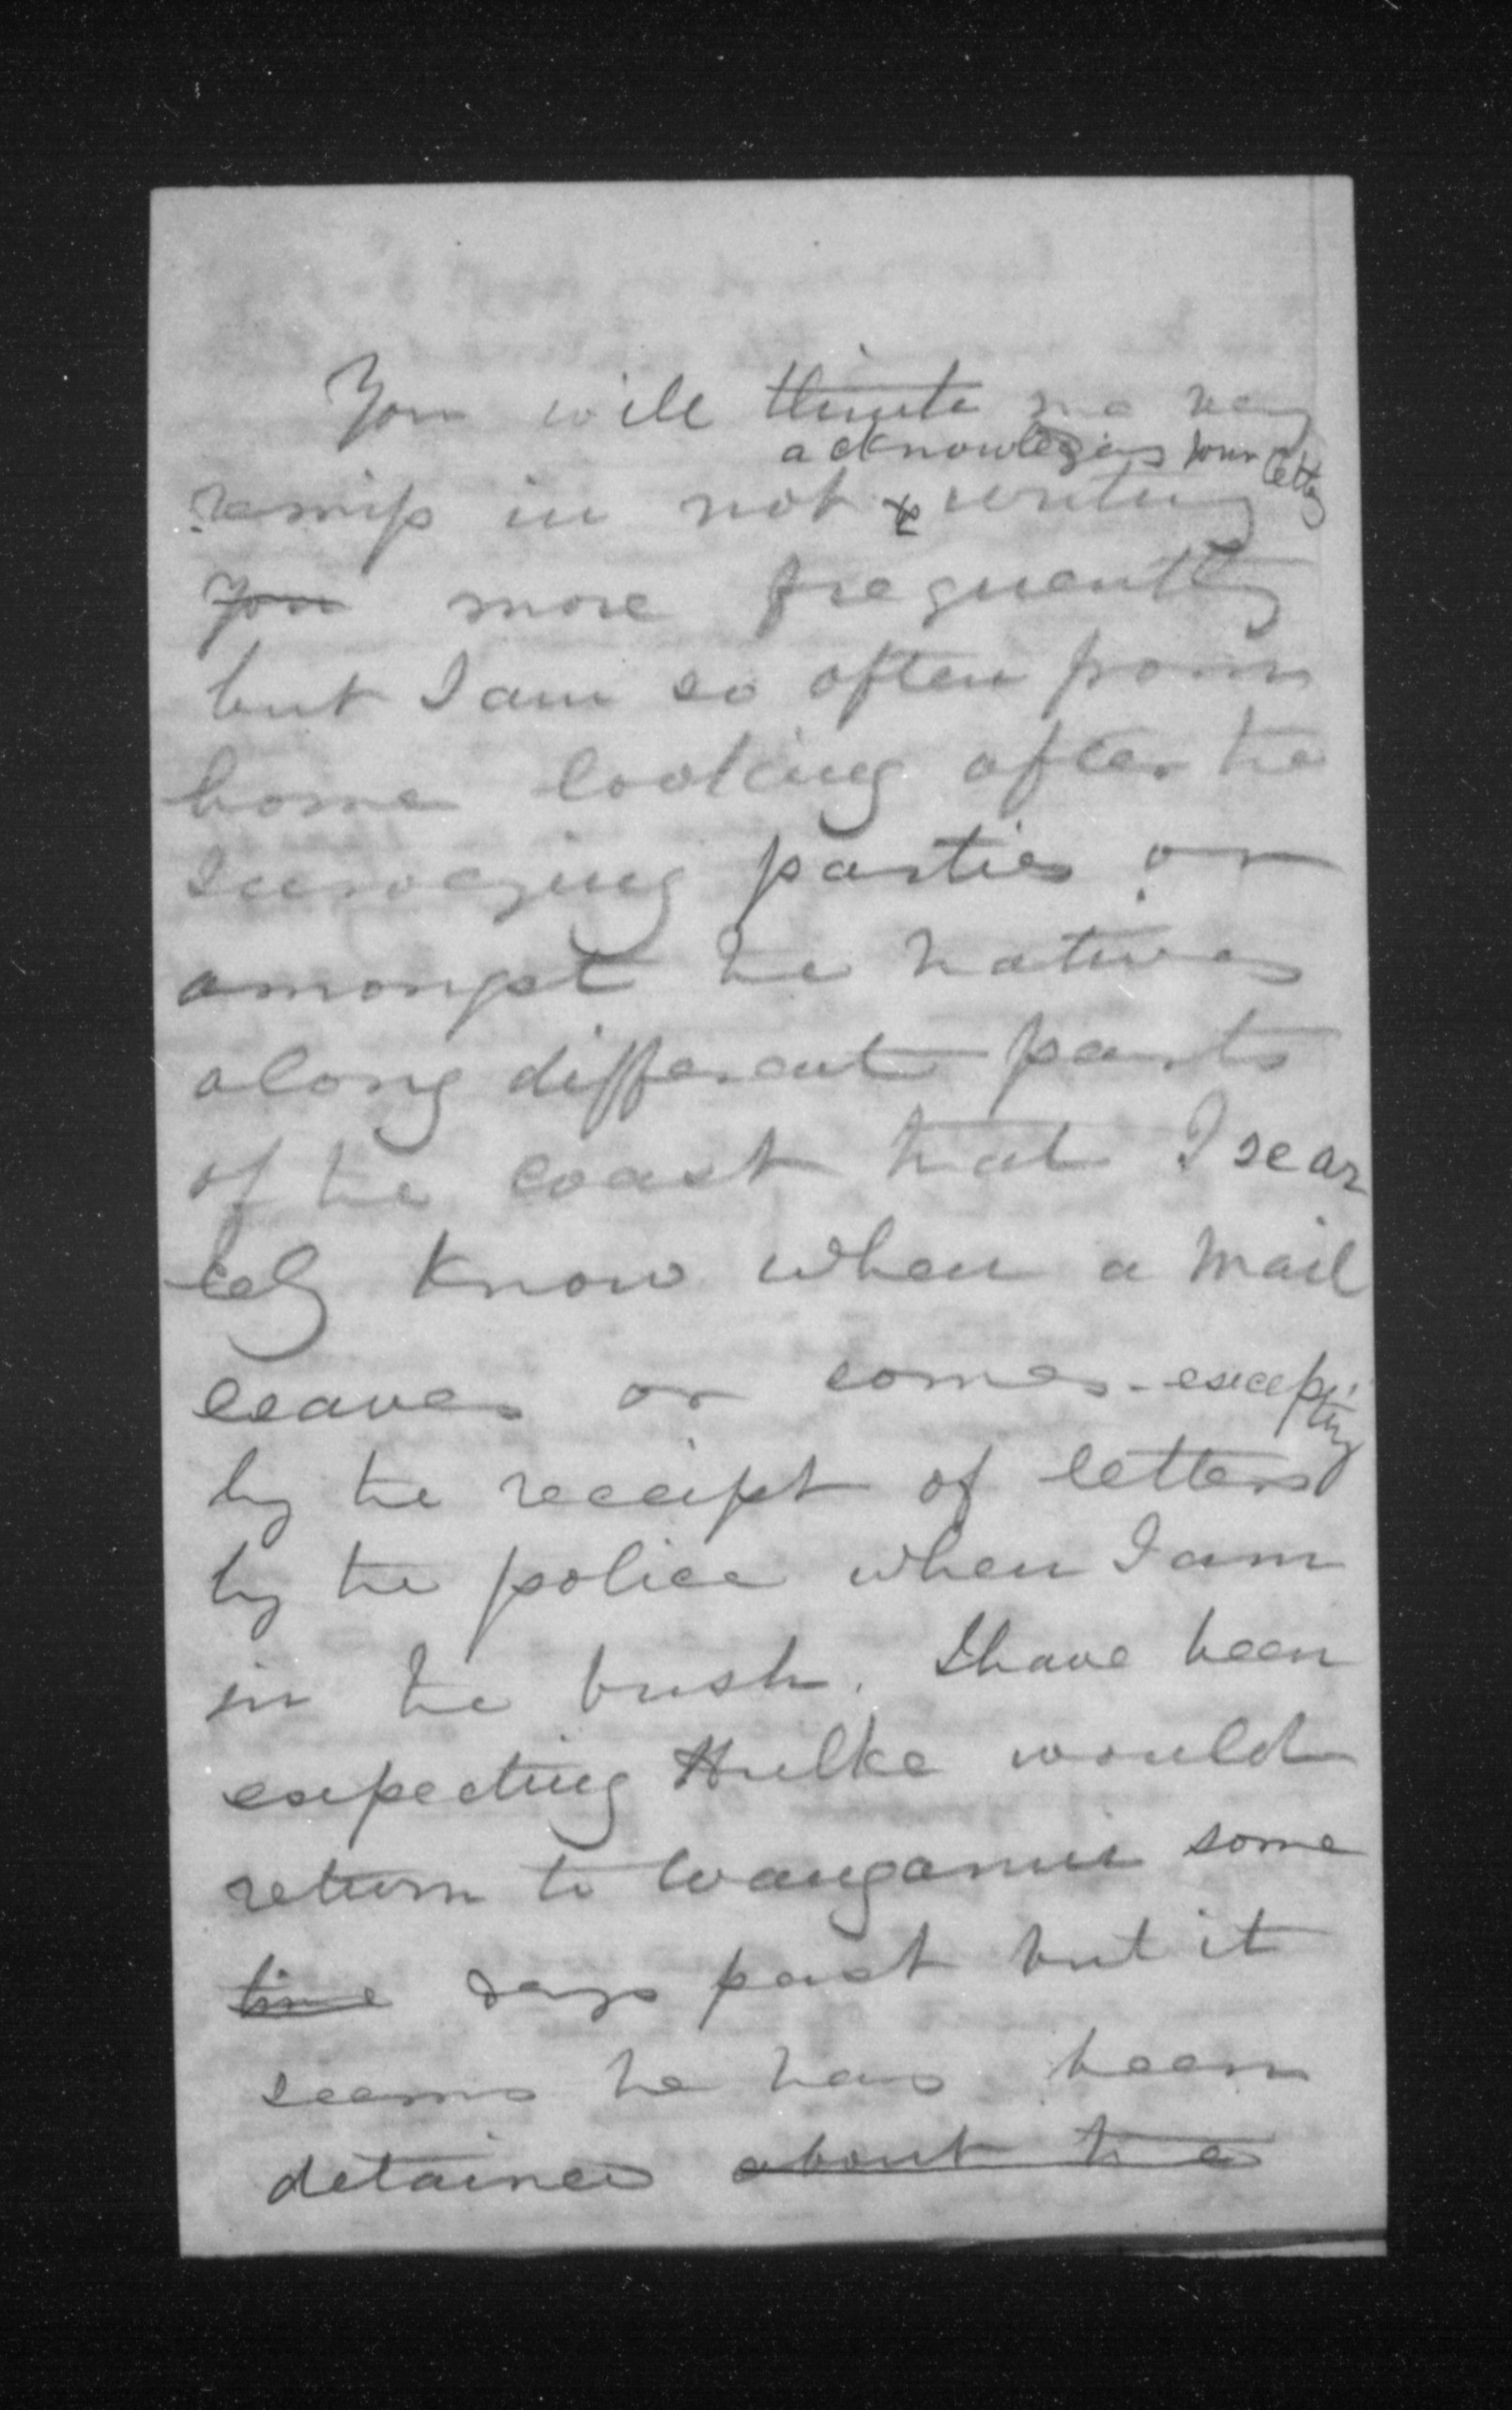 You will think me very
acknowleging your letters
remiss in not & writing
you more frequently
but I am so often from
home looking after the
surveying parties or
amongst the natives
along different parts
of the coast that I scar
cely know when a mail
leaves or comes - excepting
by the receipt of letters
by the police when I am
in the bush. I have been
expecting Hulke would
return to Wanganui some
time days past but it
seems he has been
detained about the